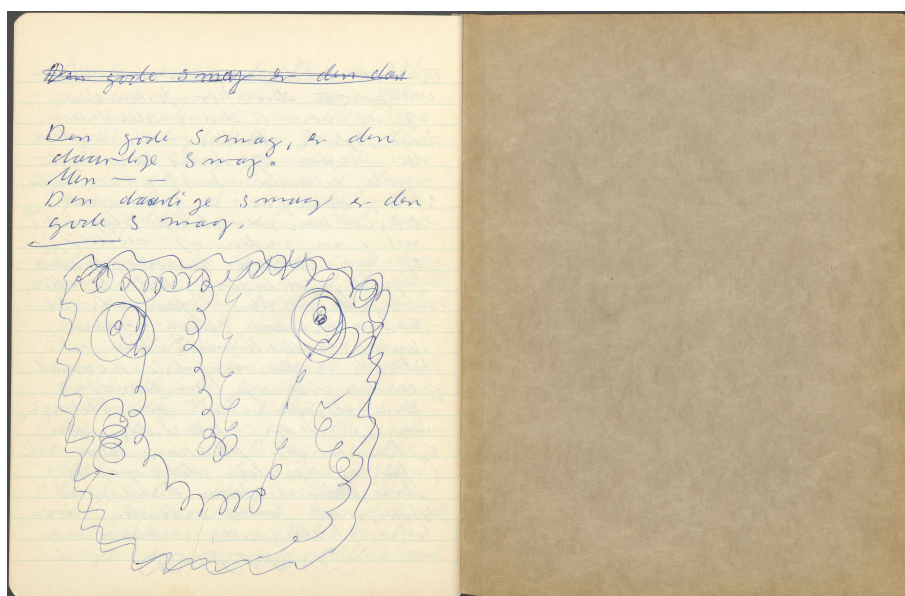 Den gode smag er den daa
Den gode smag, er den
daarlige smag.
Men — —
Den daarlige smaag er den
gode smaag.